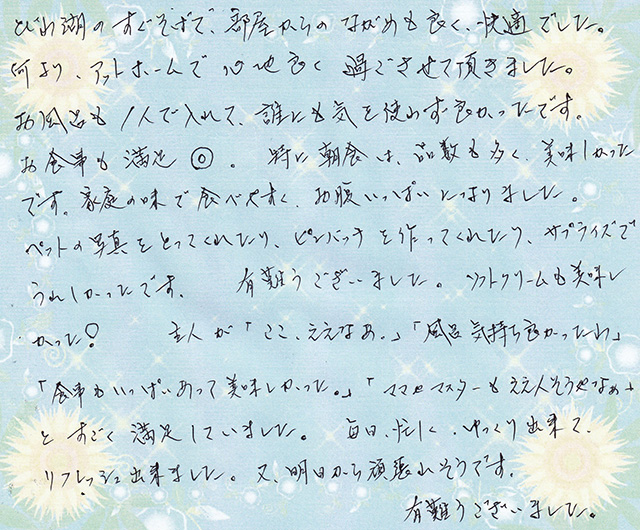 びわ湖のすぐそばで、部屋からのながめも良く、快適でした。
何より、アットホームで心地良く過ごさせて頂きました。
お風呂も1人で入れて、誰にも気を使わず良かったです。
お食事も満足◎。特に朝食は、品数も多く、美味しかった
です。家庭の味で食べやすく、お腹いっぱいになりました。
ペットの写真をとってくれたり、ピンバッチを作ってくれたり、サプライズで
うれしかったです。有難うございました。ソフトクリームも美味し
かった!主人が「ここ、ええなあ。」「風呂気持ち良かったわ」
「食事もいっぱいあって美味しかった。」「ママもマスターもええ人そうやなぁ」
とすごく満足していました。毎日、忙しく、ゆっくり出来て、
リフレッシュ出来ました。又、明日から頑張れそうです。
有難うございました。